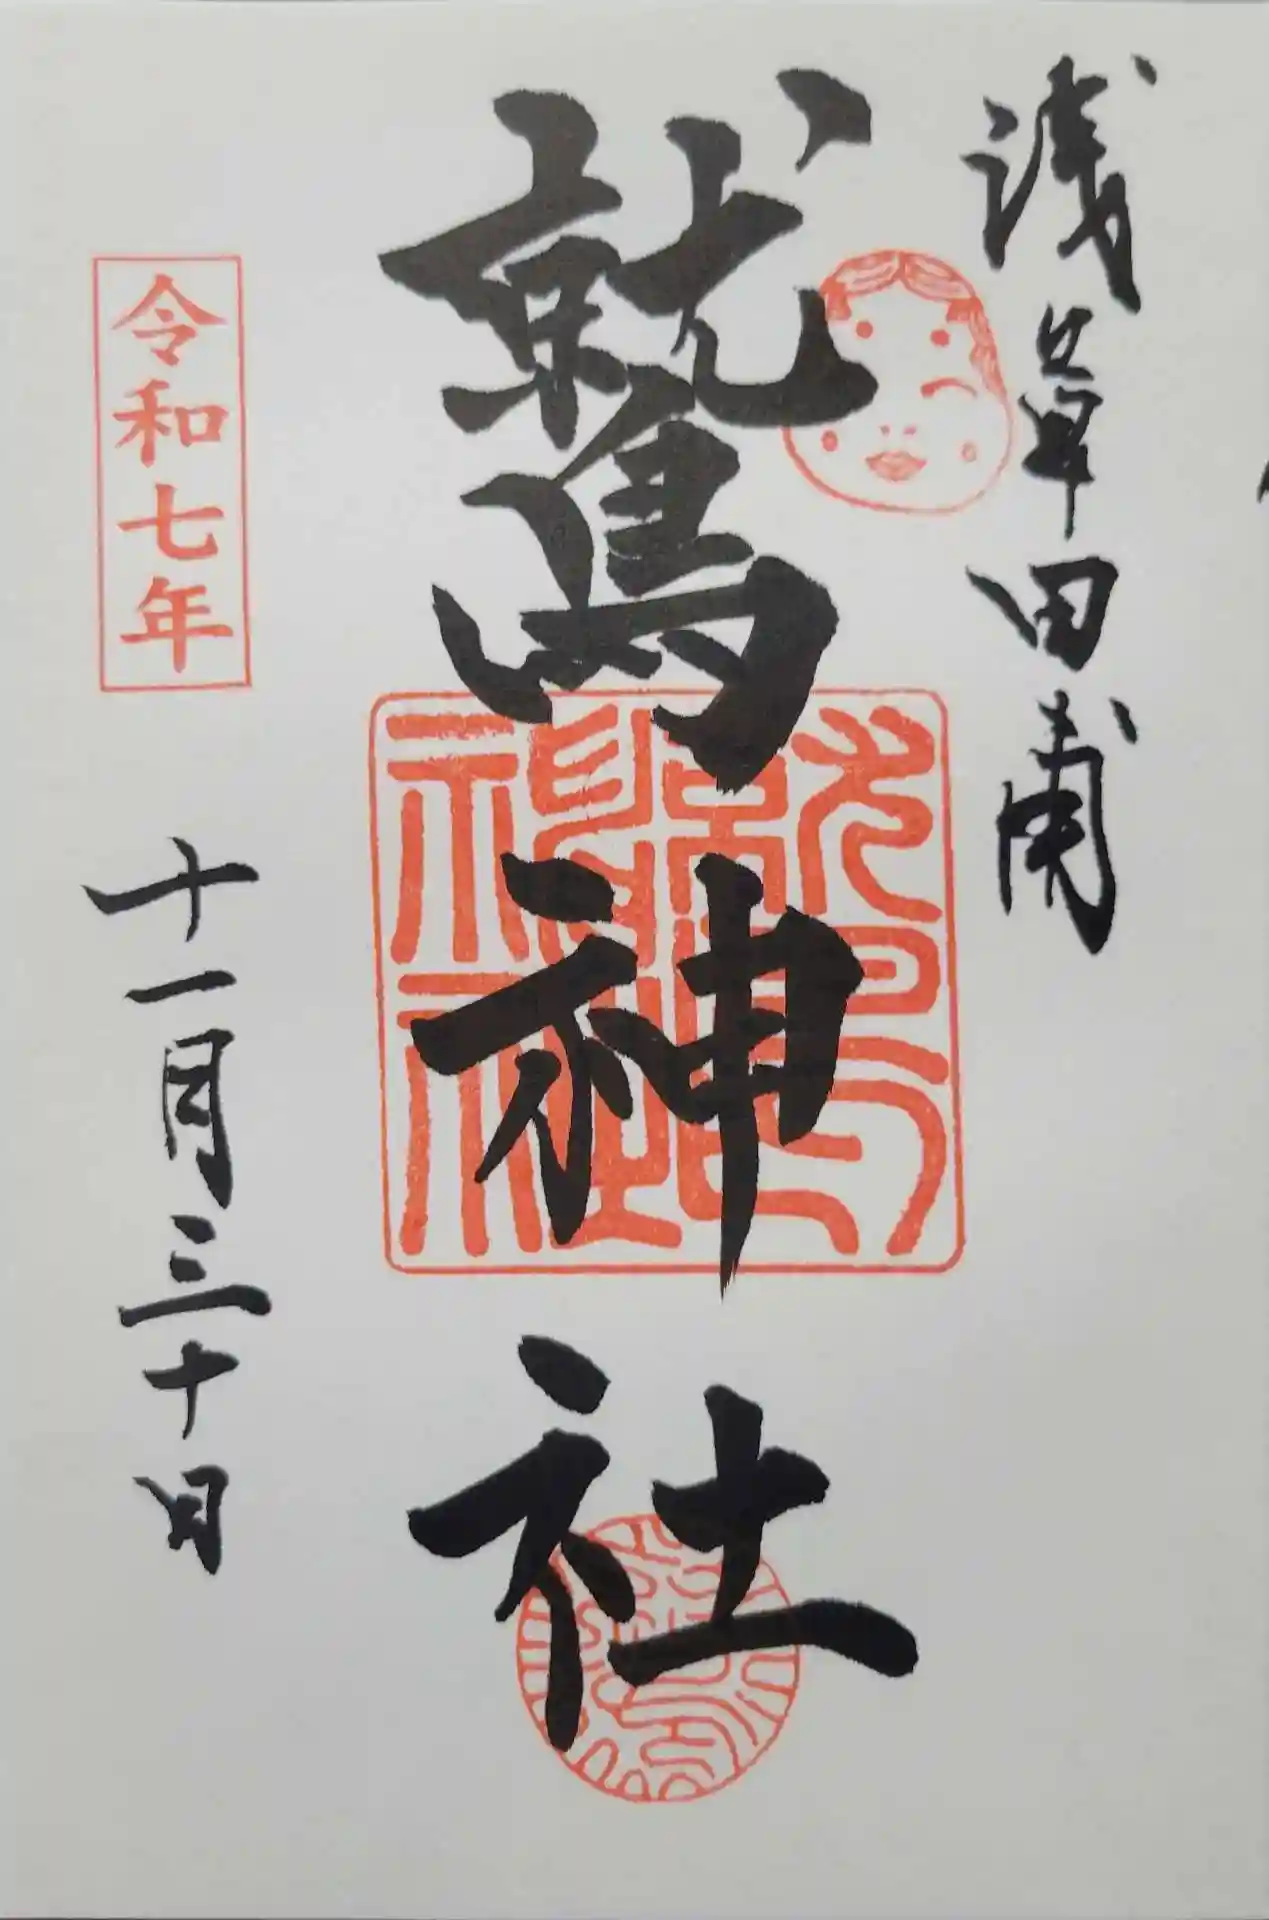 浅草田甫
鷲神社
鷲神社
令和七年
十一月三十日